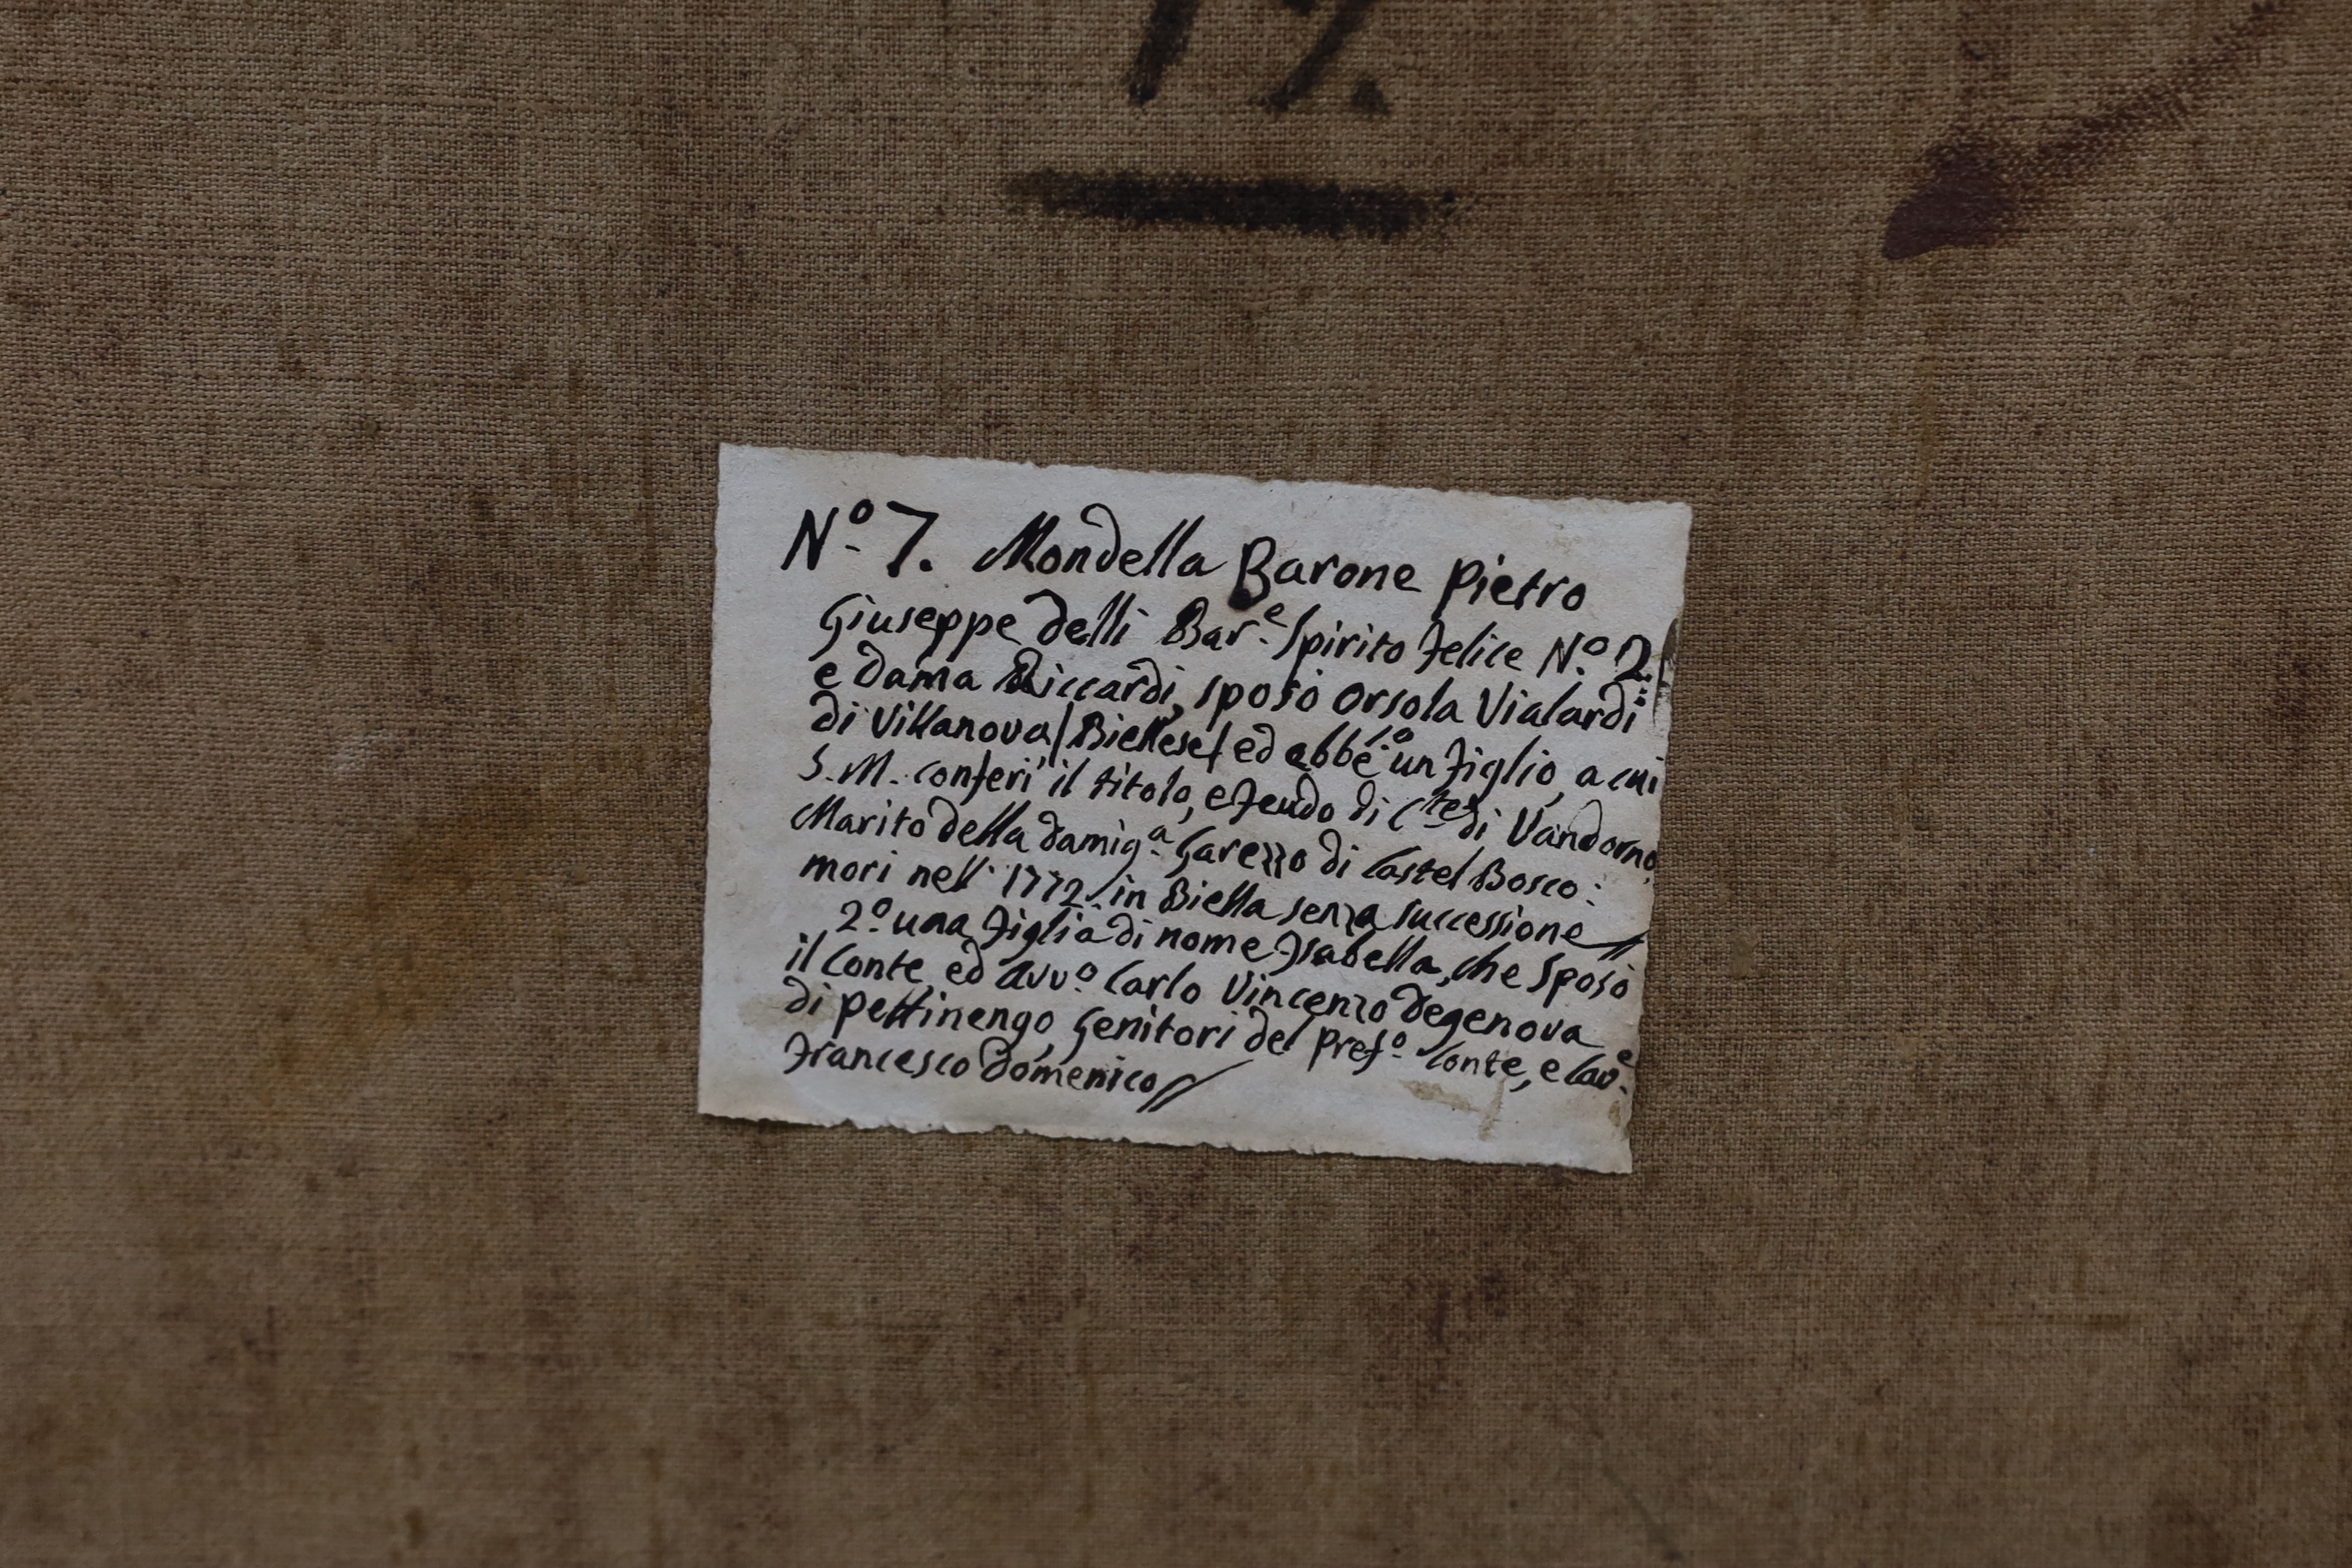 17.
Nº 7. Mondella Barone Pietro
Giuseppe delli Bar.e Spirito Felice Nº 2.
e dama Riccardi, sposò Orsola Vialardi
di Villanova/Biellese/ ed ebbe 1.º un figlio, a cui
S. M. conferi' il titolo, e feudo di C.te di Vandorno,
Marito della damig.a Garezzo di Castel Bosco:
mori nell' 1772. in Biella senza successione //
2.º una figlia di nome Isabella, che sposò
il Conte, ed Avv.º Carlo Vincenzo Degenova
di Pettinengo, Genitori del Pref.º Conte, e Cav.e
Francesco Domenico //